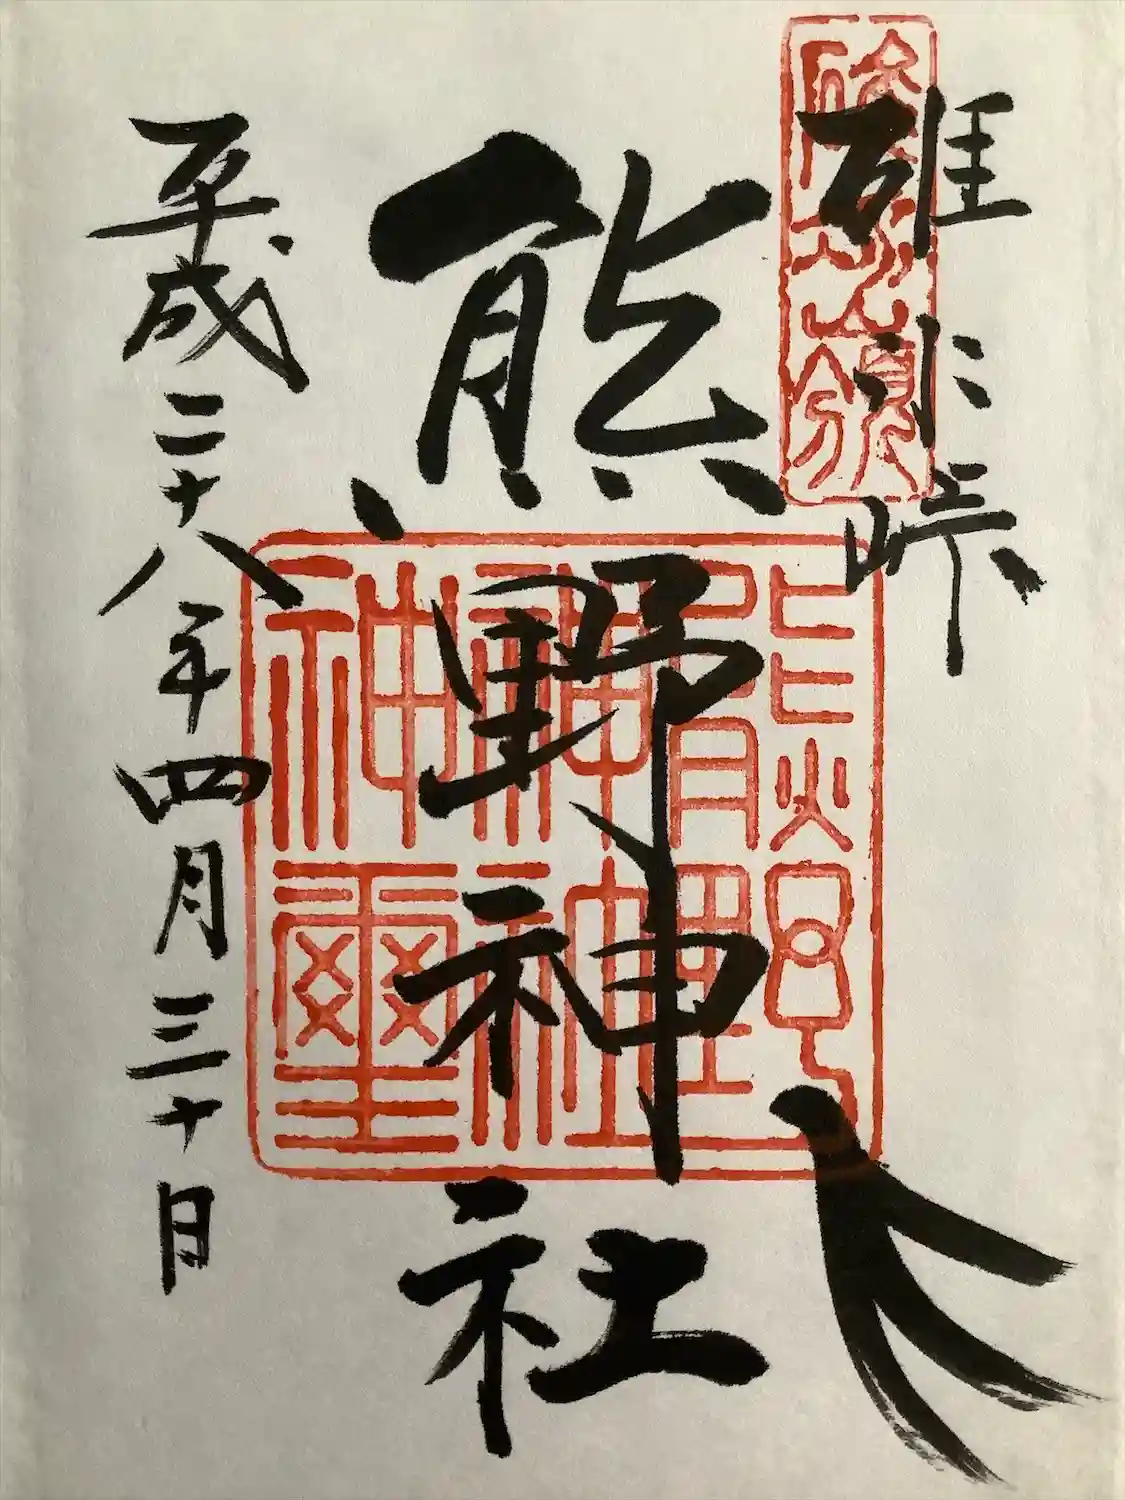 碓氷峠
熊野神社
平成二十八年四月三十日
熊野神社神璽